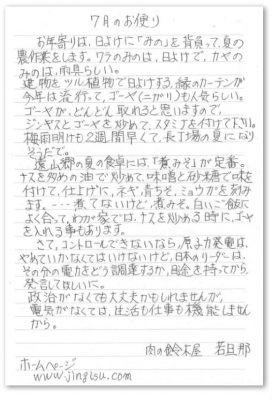 7月のお便り
お年寄りは、日よけに「みの」を背負って、夏の
農作業をします。ワラのみのは、日よけで、カヤの
みのは、雨具らしい。
建物をツル植物で日よけする、緑のカーテンが
今年は流行って、ゴーヤ(ニガリ)も人気らしい。
ゴーヤが、どんどん取れると思いますので、
ジンギスとゴーヤを炒めて、スタミナを付けて下さい。
梅雨明けも2週間早くて、長丁場の夏になり
そうだで。
遠山郷の夏の食卓には、「煮みそ」が定番。
ナスを多めの油で炒めて、味噌と砂糖で味を
付けて、仕上げに、ネギ、青ちそ、ミョウガを刻み
ます。…煮てないけど、煮みそ。白いご飯に
よく合って、わが家では、ナスを炒める時に、ゴーヤ
を入れる事もあります。
さて、コントロールできないなら、原子力発電は、
やめていかなくてはいけないけど、日本のリーダーは、
その分の電力をどう調達するか、目金を持ってから、
発言してほしいに。
政治がなくても大丈夫かもしれませんが、
電気がなくては、生活も仕事も機能しません
から。
肉の鈴木屋 若旦那
ホームページ
www.jingisu.com